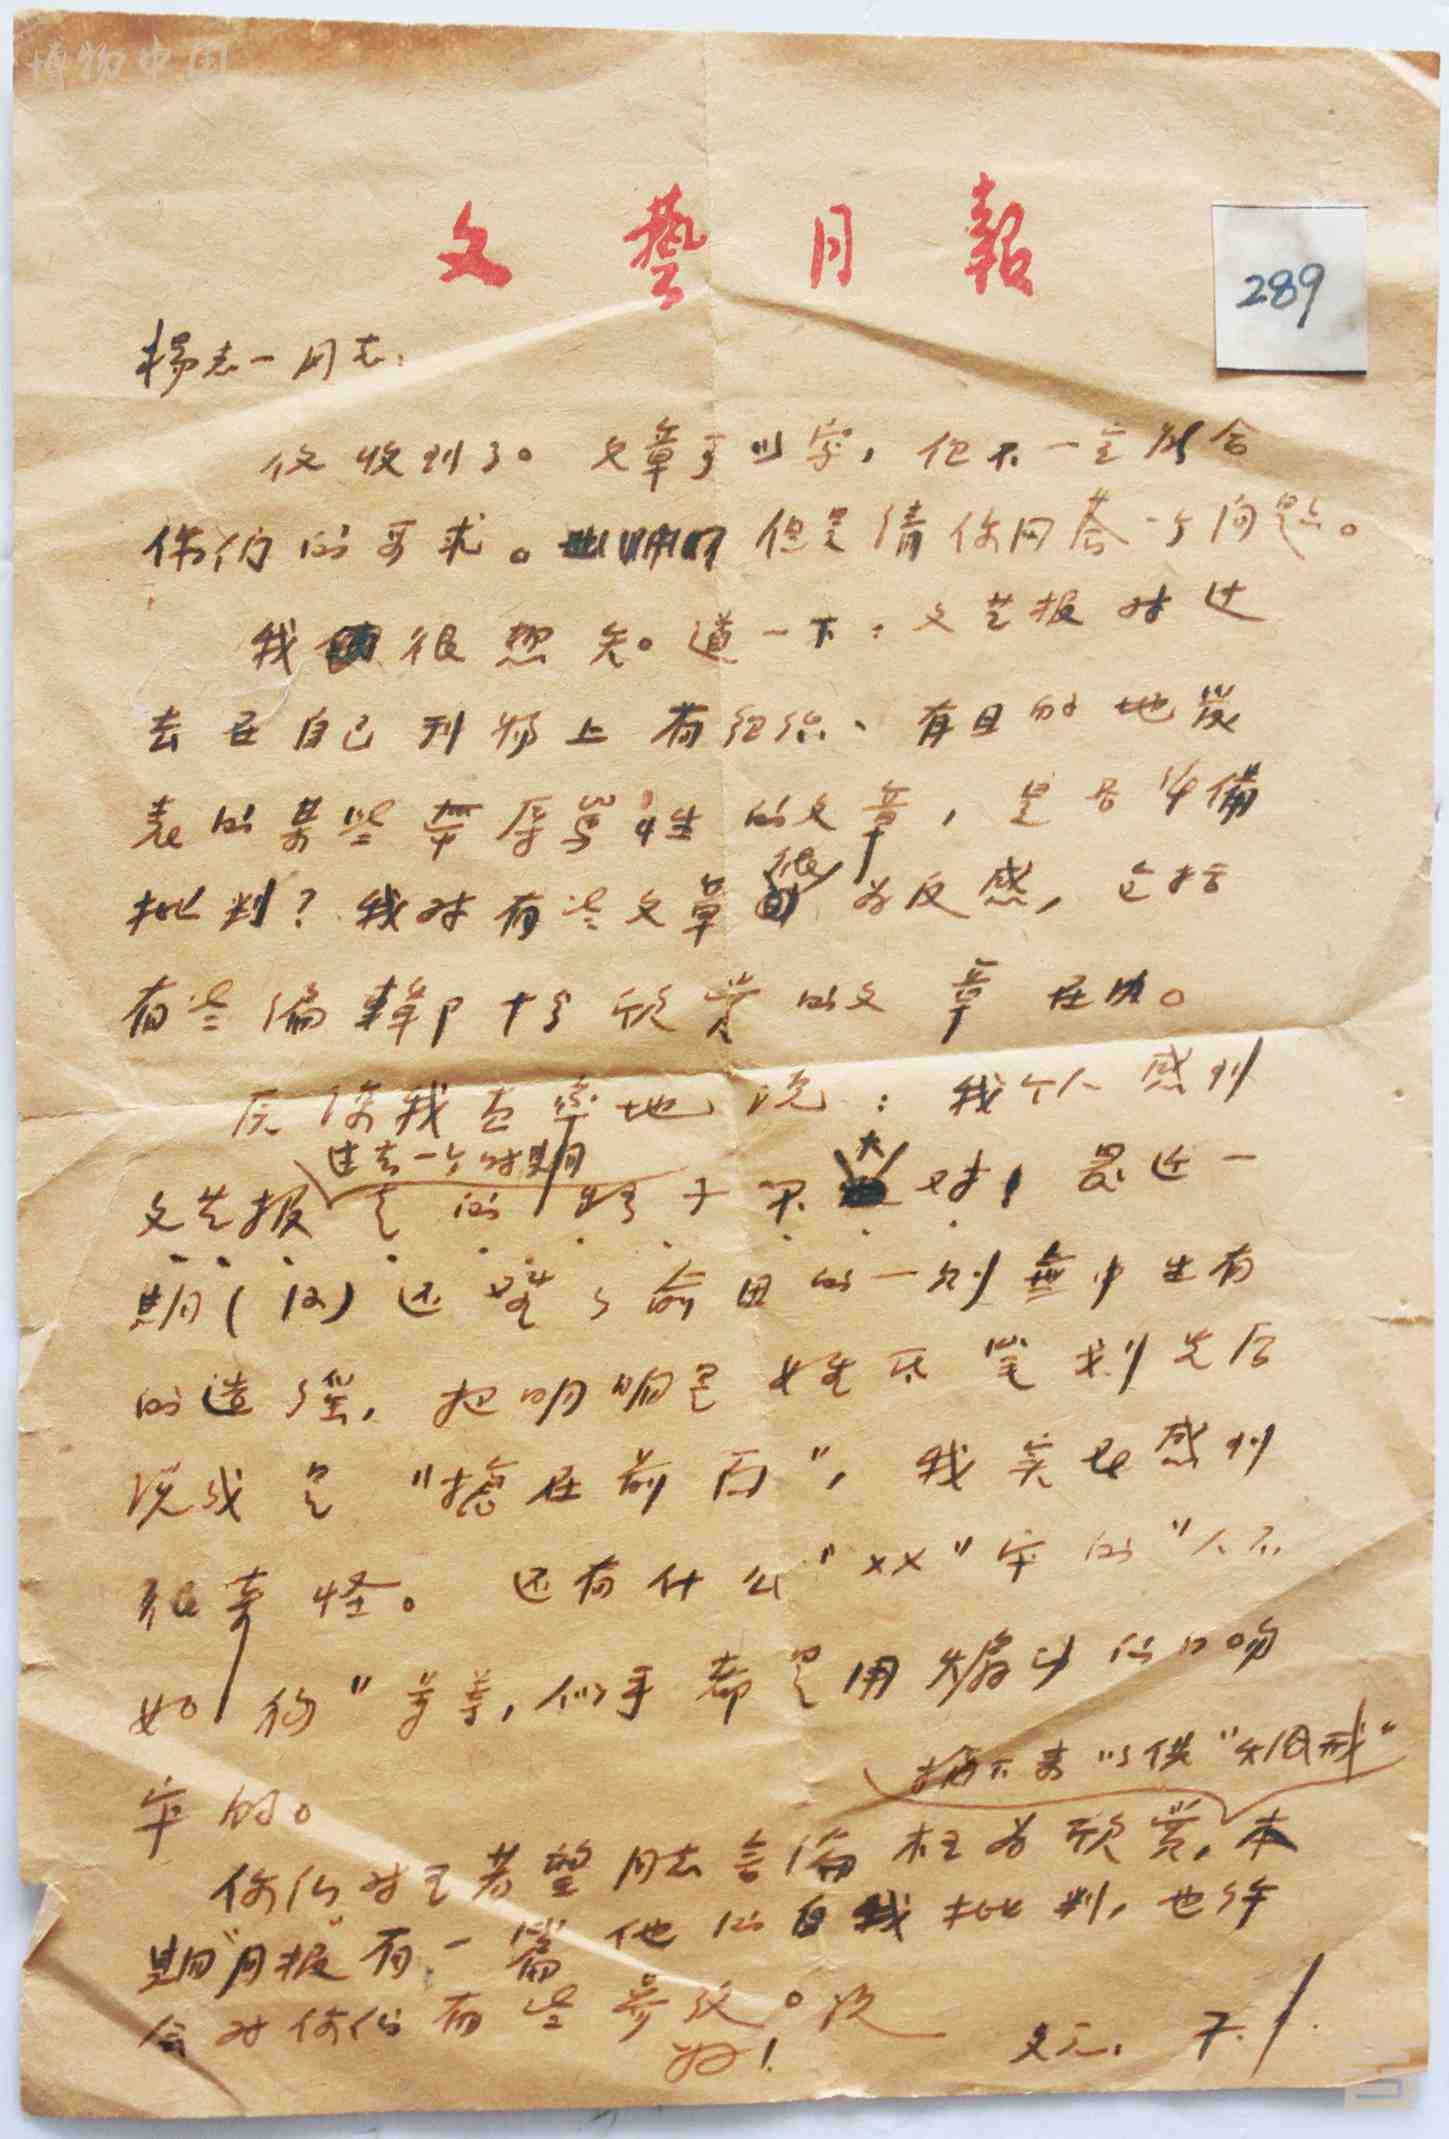 博物中国
文藝月報
289
杨志一同志:
信收到了。文章可以写,但不一定能合
你们的要求。但是请你回答一个问题。
我很想知道一下:文艺报对过
去在自己刊物上有组织、有目的地发
表的某些带辱骂性的文章,是否准备
批判?我对有些文章很为反感,包括
有些编辑部十分欣赏的文章在内。
反映我直率地说:我个人感到
过去一个时期
文艺报是的 于不大对,最近一
期(12)还登了 的一则無中生有
的造谣,把明明是姓氏笔划先后
说成是"摆在前面",我实在感到
很奇怪。还有什么"××"写的"人不
如狗"等等,似乎都是用煽动的口吻
写的。
摘下来以供"知戒"
你们对王若望同志言论极为欣赏,本
期"月报"有一篇他的自我批判,也许
会对你们有些参考。祝
好!
文元. 7.1.